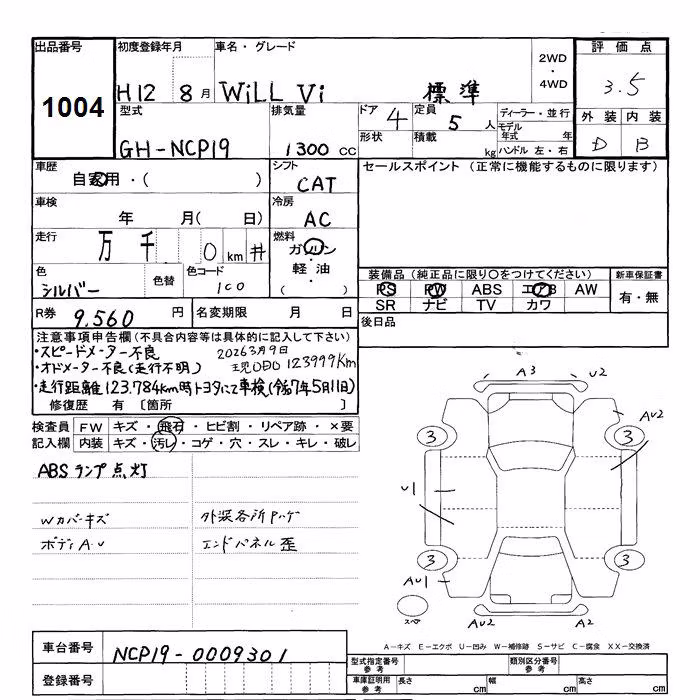 出品番号 初度登録年月 車名・グレード 2WD・4WD 評価点
1004 H12 8月 WiLL Vi 標準 3.5
型式 排気量 ドア 4 定員 5人 ディーラー・並行 外装 内装
GH-NCP19 1300cc 形状 積載 kg モデル年式 年 ハンドル 左・右 D B
車歴 シフト セールスポイント（正常に機能するものに限ります）
自家用・（ ） CAT
車検 冷房
年 月（ 日） AC
走行 燃料
万 千 0 km # ガソリン・軽油（ ）
色 色替 色コード 装備品（純正品に限り○をつけてください） 新車保証書
シルバー 100 PS PW ABS エアB AW 有・無
SR ナビ TV カワ
R券 9,560円 名変期限 月 日 後日品
注意事項申告欄（不具合内容等は具体的に記入して下さい）
・スピードメーター不良 2026 3月9日
・オドメーター不良（走行不明） 現ODO 123999Km
・走行距離123.784km時トヨタにて車検（令和7年5月11日）
修復歴 有〔箇所 〕
検査員 FW キズ・飛石・ヒビ割・リペア跡・×要
記入欄 内装 キズ・汚レ・コゲ・穴・スレ・キレ・破レ
ABSランプ点灯
Wカバーキズ 外装各所
ボディA・U エンドパネル歪
A3 U2
AU2
3 3
U1
3 3
AU1
AU2 A2
スペア
A－キズ E－エクボ U－凹み W－補修跡 S－サビ C－腐食 XX－交換済
車台番号 NCP19-0009301
型式指定番号 参考 類別区分番号 参考
登録番号 車庫証明用 参考 長さ cm 幅 cm 高さ cm